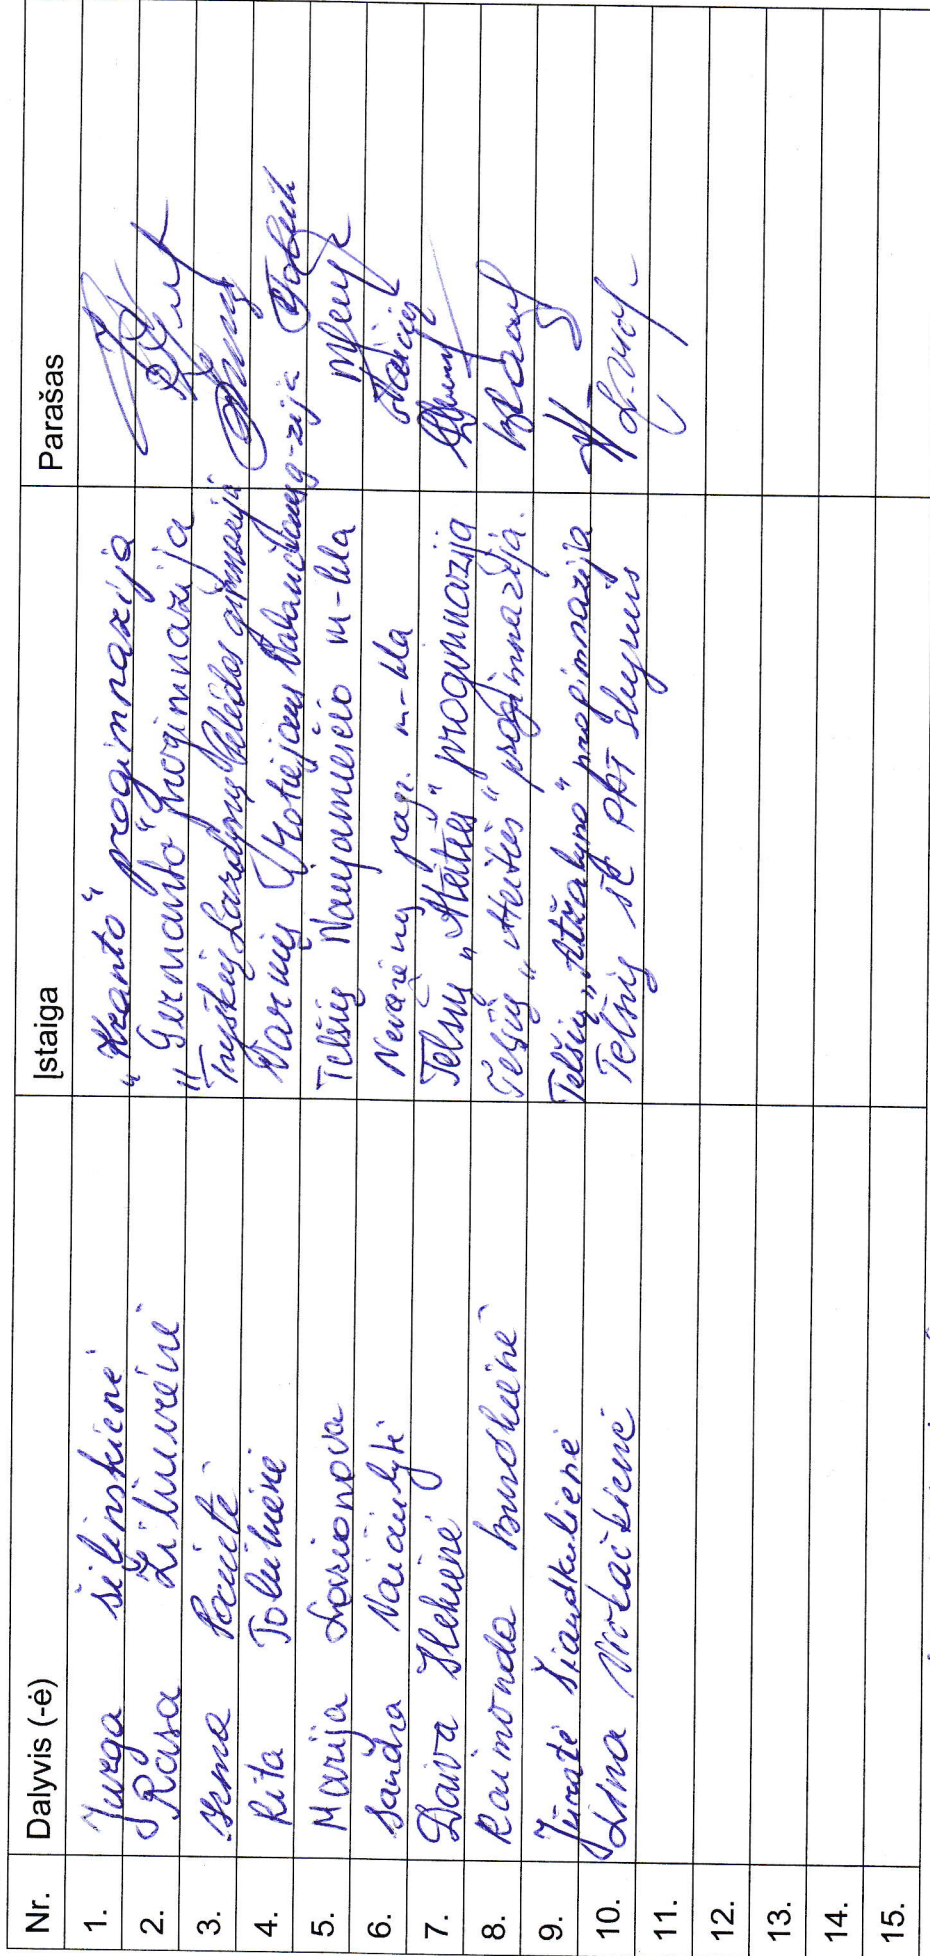 Nr. Dalyvis (-ė) Įstaiga Parašas
1. Jurga Šilinskienė „Kranto" progimnazija
2. Rasa Žilinienė „Germanto" progimnazija
3. Irma Tryškių Lazdynų Pelėdos gimnazija
4. Rita Varnių Motiejaus Valančiaus g-zija
5. Marija Larionova Telšių Naujamiesčio m-kla
6. Sandra Vaičiulytė Nevarėnų pagr. m-kla
7. Daiva Telšių „Ateities" progimnazija
8. Raimonda Telšių „Ateities" progimnazija.
9. Jūratė Šiaudkulienė Telšių „Atžalyno" progimnazija
10. Lina Telšių ŠC PPT skyrius
11.
12.
13.
14.
15.